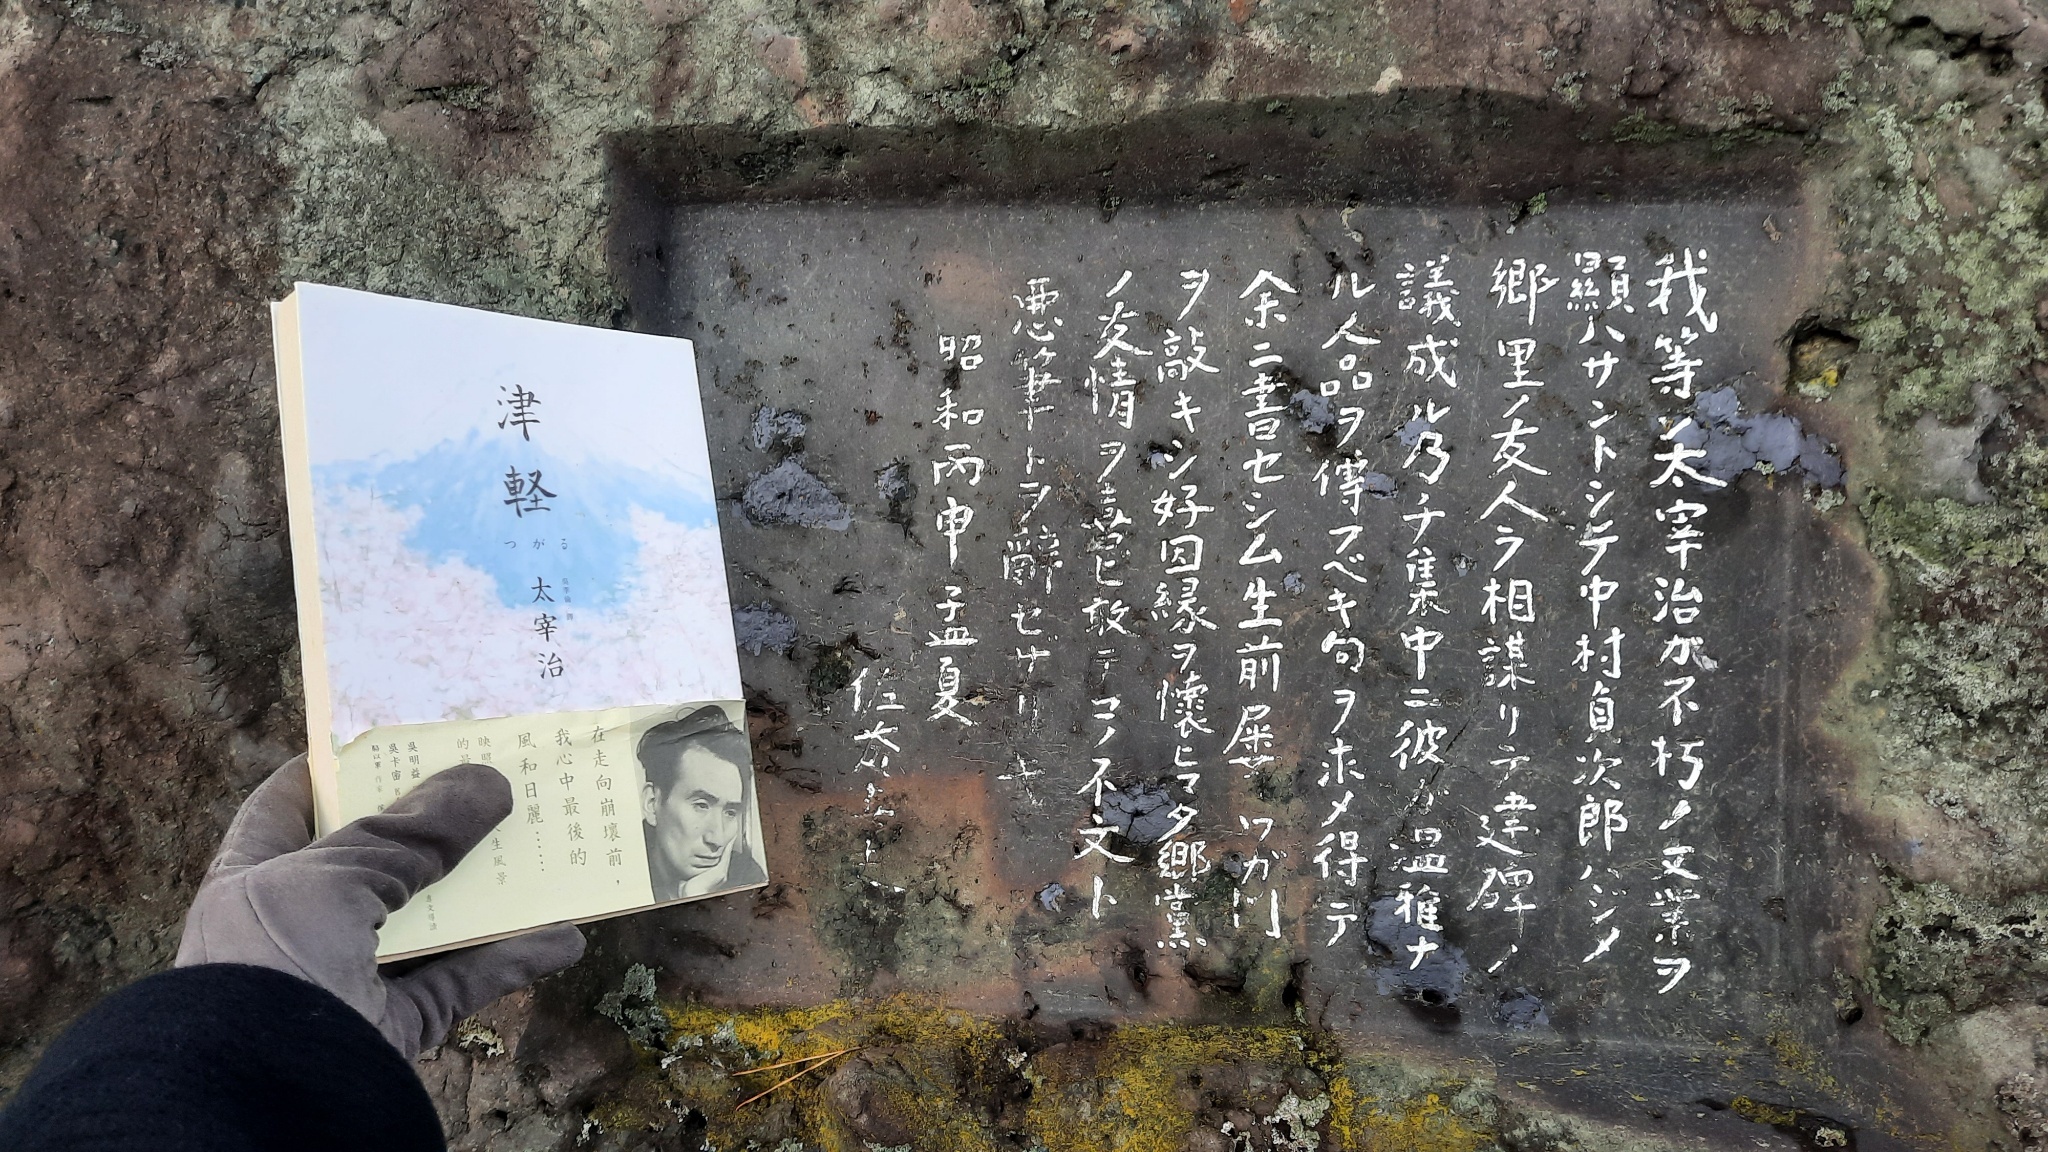 津軽
つがる
太宰治
在走向崩壞前，
我心中最後的
風和日麗……
映照
的最
人生風景
吳明益
吳卡密
我等ノ太宰治が不朽ノ文業ヲ
顯ハサントシテ中村貞次郎ハジメ
郷里ノ友人ラ相謀リテ建碑ノ
議成ル乃チ集中ニ彼ガ温雅ナ
ル人品ヲ傳フベキ句ヲホメ得テ
余ニ書セシム生前屡〻ワガ門
ヲ敲キシ好因縁ヲ懐ヒマタ郷黨
ノ友情ヲ喜ビ敢テコノ不文ト
悪筆トヲ辭セザリキ
昭和丙申孟夏
佐藤